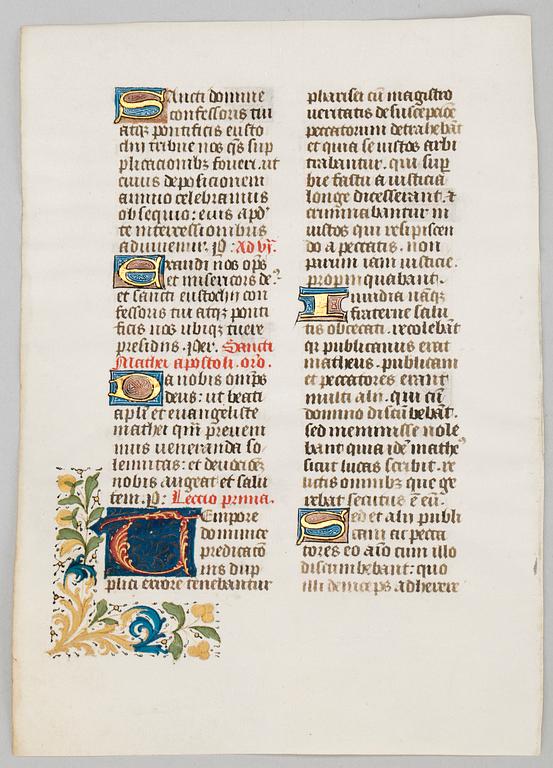 Sancti domine
confessoris tui
atqz pontificis eusto
chii tribue nos qs sup
plicacionibz foueri. ut
cuius deposicionem
annuo celebramus
obsequio: eius apd
te intercessionibus
adiuuemur. P: Ad vs.
Exaudi nos ops
et misericors de9
et sancti eustochii con
fessoris tui atqz ponti
ficis nos ubiqz tuere
presidiis. per. Sancti
Mathei apostoli. oro.
Da nobis omips
deus: ut beati
apli et euangeliste
mathei qm preueni
mus ueneranda so
lemnitas: et deuocioez
nobis augeat et salu
tem. P: Leccio prima.
Tempore
dominice
predicacio
nis dup
plici errore tenebantur
pharisei cu magistro
ueritatis de suscepcoe
peccatorum detrahebat
et quia se iustos arbi
trabantur. qui sup
bie fastu a iusticia
longe dicesserant. et
criminabantur in
iustos qui resipiscen
do a peccatis. non
parum iam iusticie.
propinquabant.
Inuidia naqz
fraterne salu
tis obcecati. recolebat
qr publicanus erat
matheus. publicani
et peccatores erant
multi alii. qui cu
domino discubebat.
sed meminisse nole
bant quia ide mathe9
sicut lucas scribit. re
lictis omnibz que ge
rebat secutus e eu.
Sed et alii publi
cani ac pecca
tores eo aso cum illo
discumbebant: quo
illi deinceps adherere